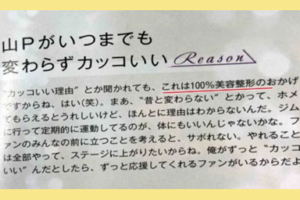 山Pがいつまでも
変わらずカッコいい Reason
"カッコいい理由"とか聞かれても、これは100%美容整形のおかげ
ですからね、はい(笑)。まあ、"昔と変わらない"とかって、ホメ
てもらえるとうれしいけど、ほんとに理由はわからないんだ。ジム
に行って定期的に運動してるのが、体にもいいんじゃないかな。フ
ァンのみんなの前に立つことを考えると、サボれない。やれること
は全部やって、ステージに上がりたいからね。俺がずっと"カッコ
いい"んだとしたら、ずっと応援してくれるファンがいるからだよ